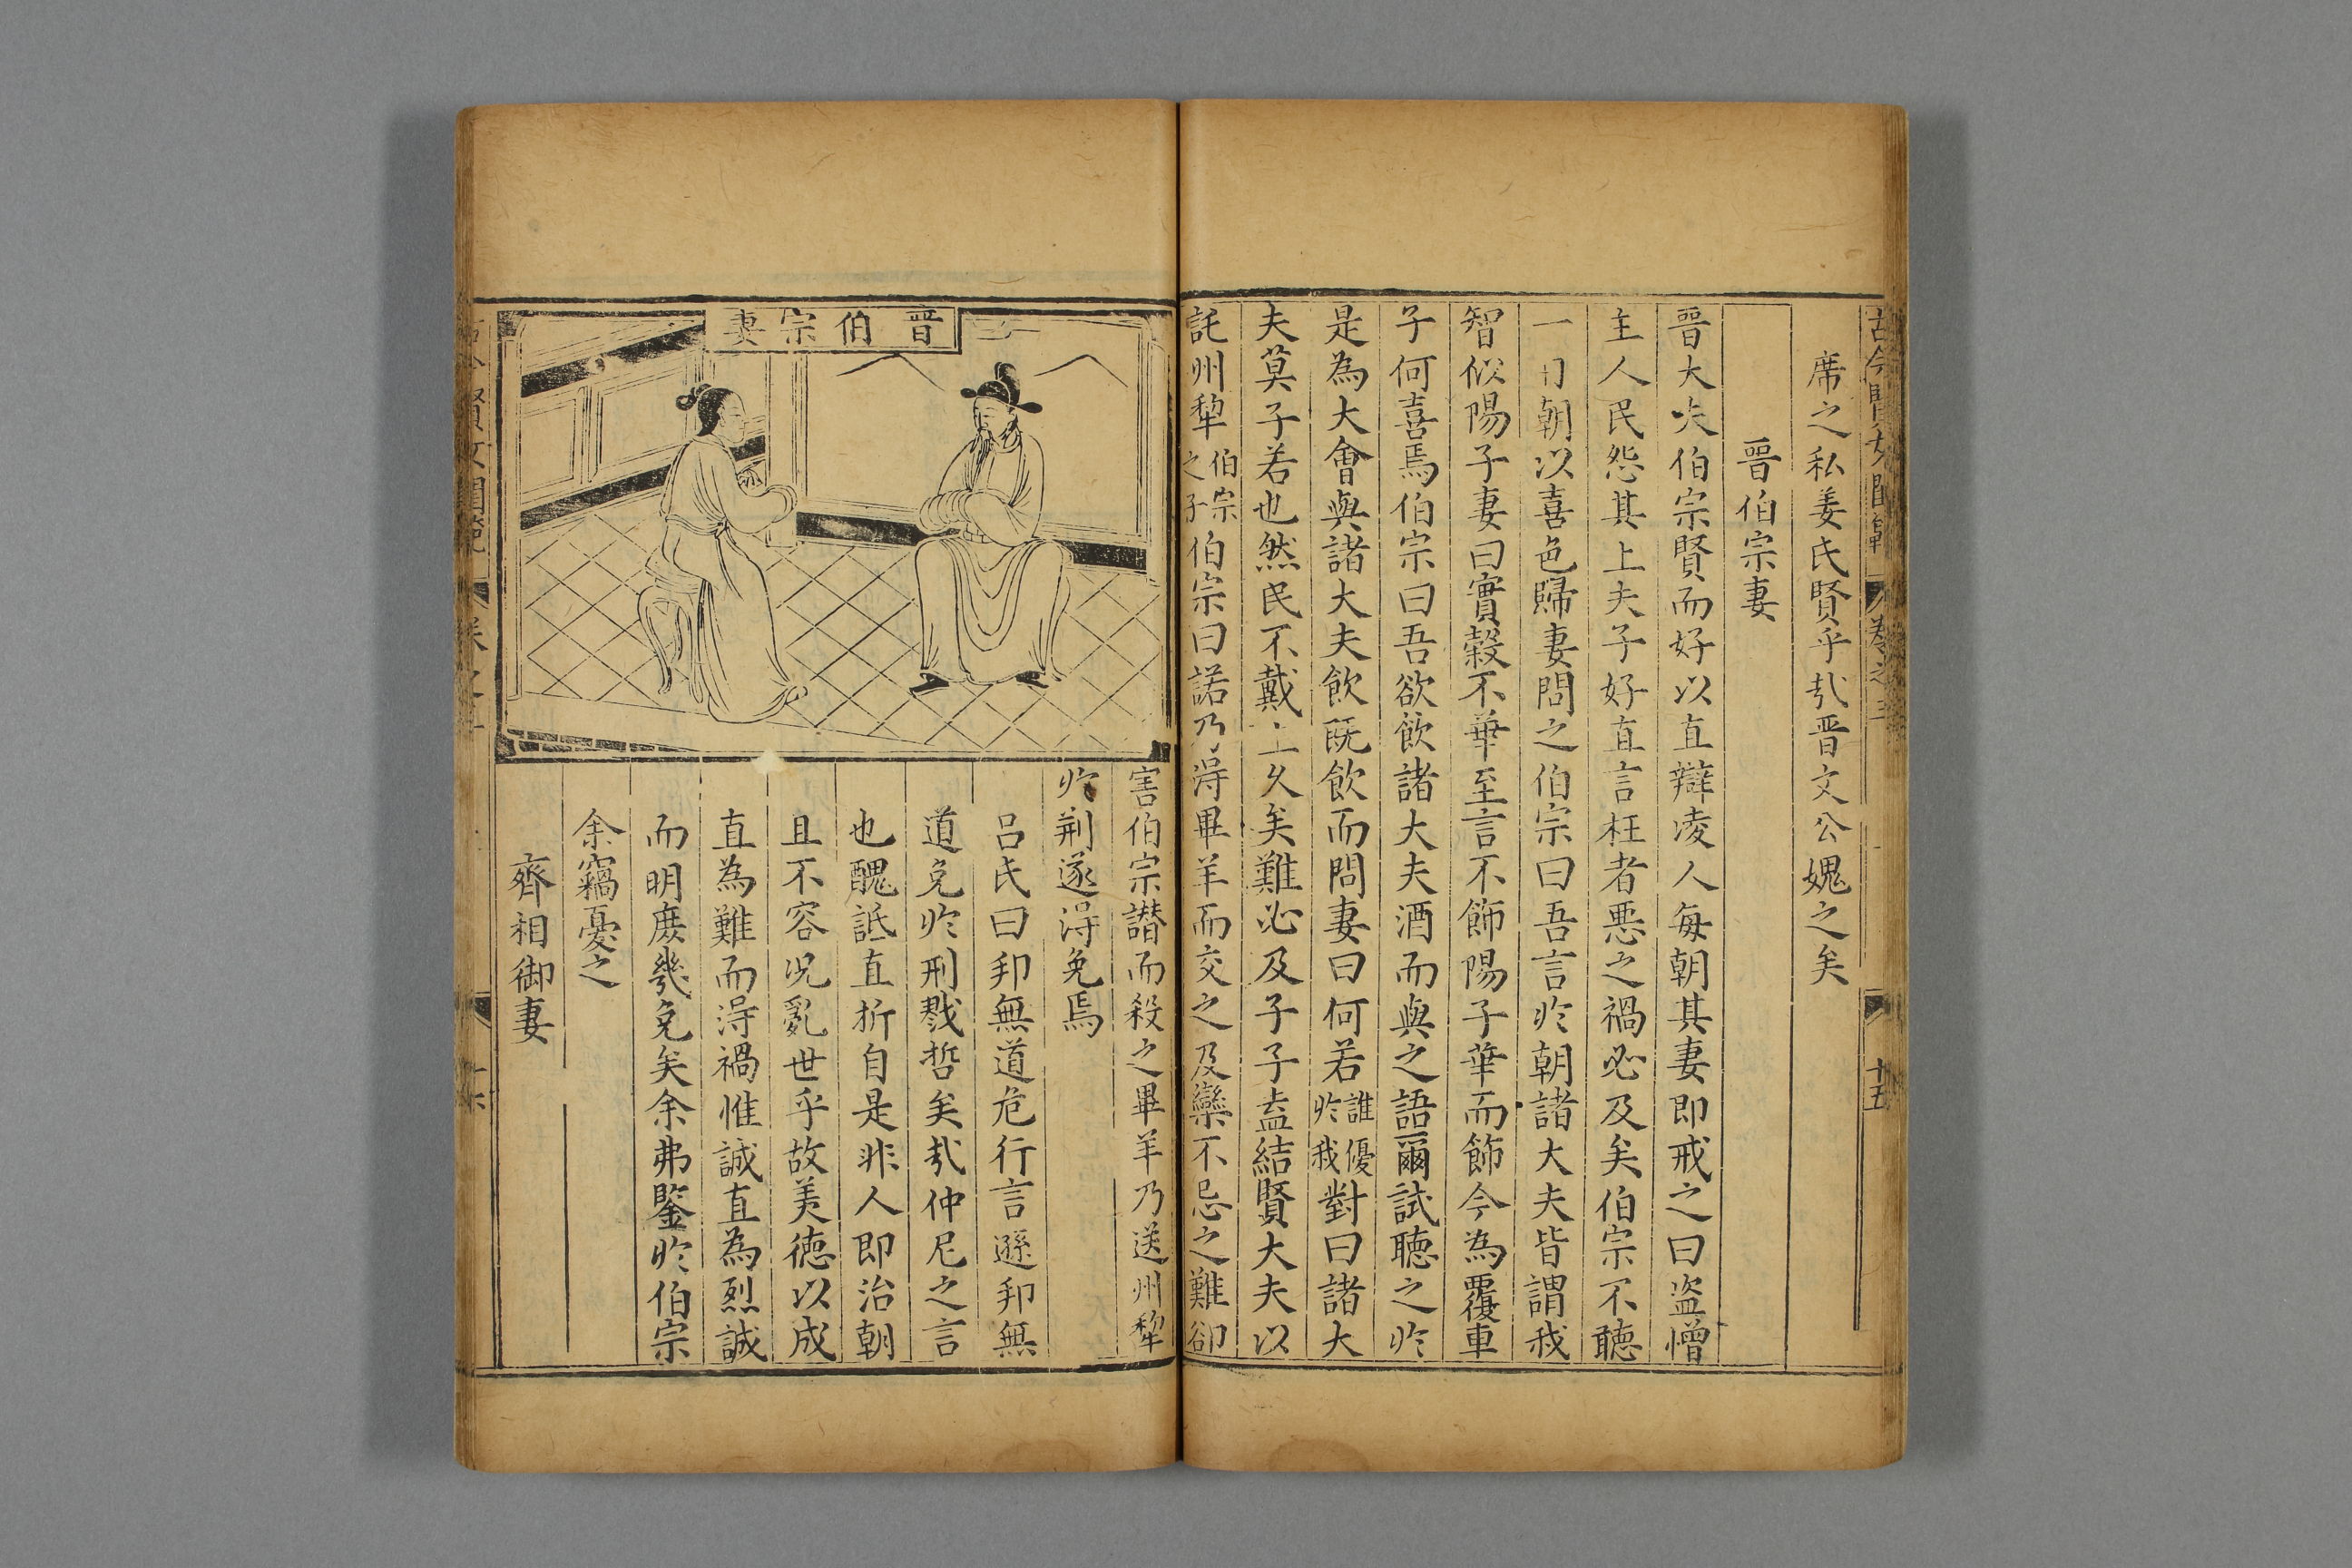 古今賢女閨範 卷之三 十五
席之私姜氏賢乎哉晋文公媿之矣
晋伯宗妻
晋大夫伯宗賢而好以直辯凌人每朝其妻即戒之曰盗憎
主人民怨其上夫子好直言枉者悪之禍必及矣伯宗不聴
一日朝以喜色歸妻問之伯宗曰吾言扵朝諸大夫皆謂我
智似陽子妻曰實榖不華至言不飾陽子華而飾今為覆車
子何喜焉伯宗曰吾欲飲諸大夫酒而與之語爾試聴之扵
是為大會與諸大夫飲既飲而問妻曰何若誰優扵我對曰諸大
夫莫子若也然民不戴上久矣難必及子子盍結賢大夫以
託州犂伯宗之子伯宗曰諾乃淂畢羊而交之及欒不忌之難卻
晋伯宗妻
害伯宗譖而殺之畢羊乃送州犂
扵荆遂淂免焉
呂氏曰邦無道危行言遜邦無
道免扵刑戮哲矣哉仲尼之言
也醜詆直折自是非人即治朝
且不容况亂世乎故美徳以成
直為難而淂禍惟誠直為烈誠
而明庻幾免矣余弗鑒扵伯宗
余竊憂之
齊相御妻